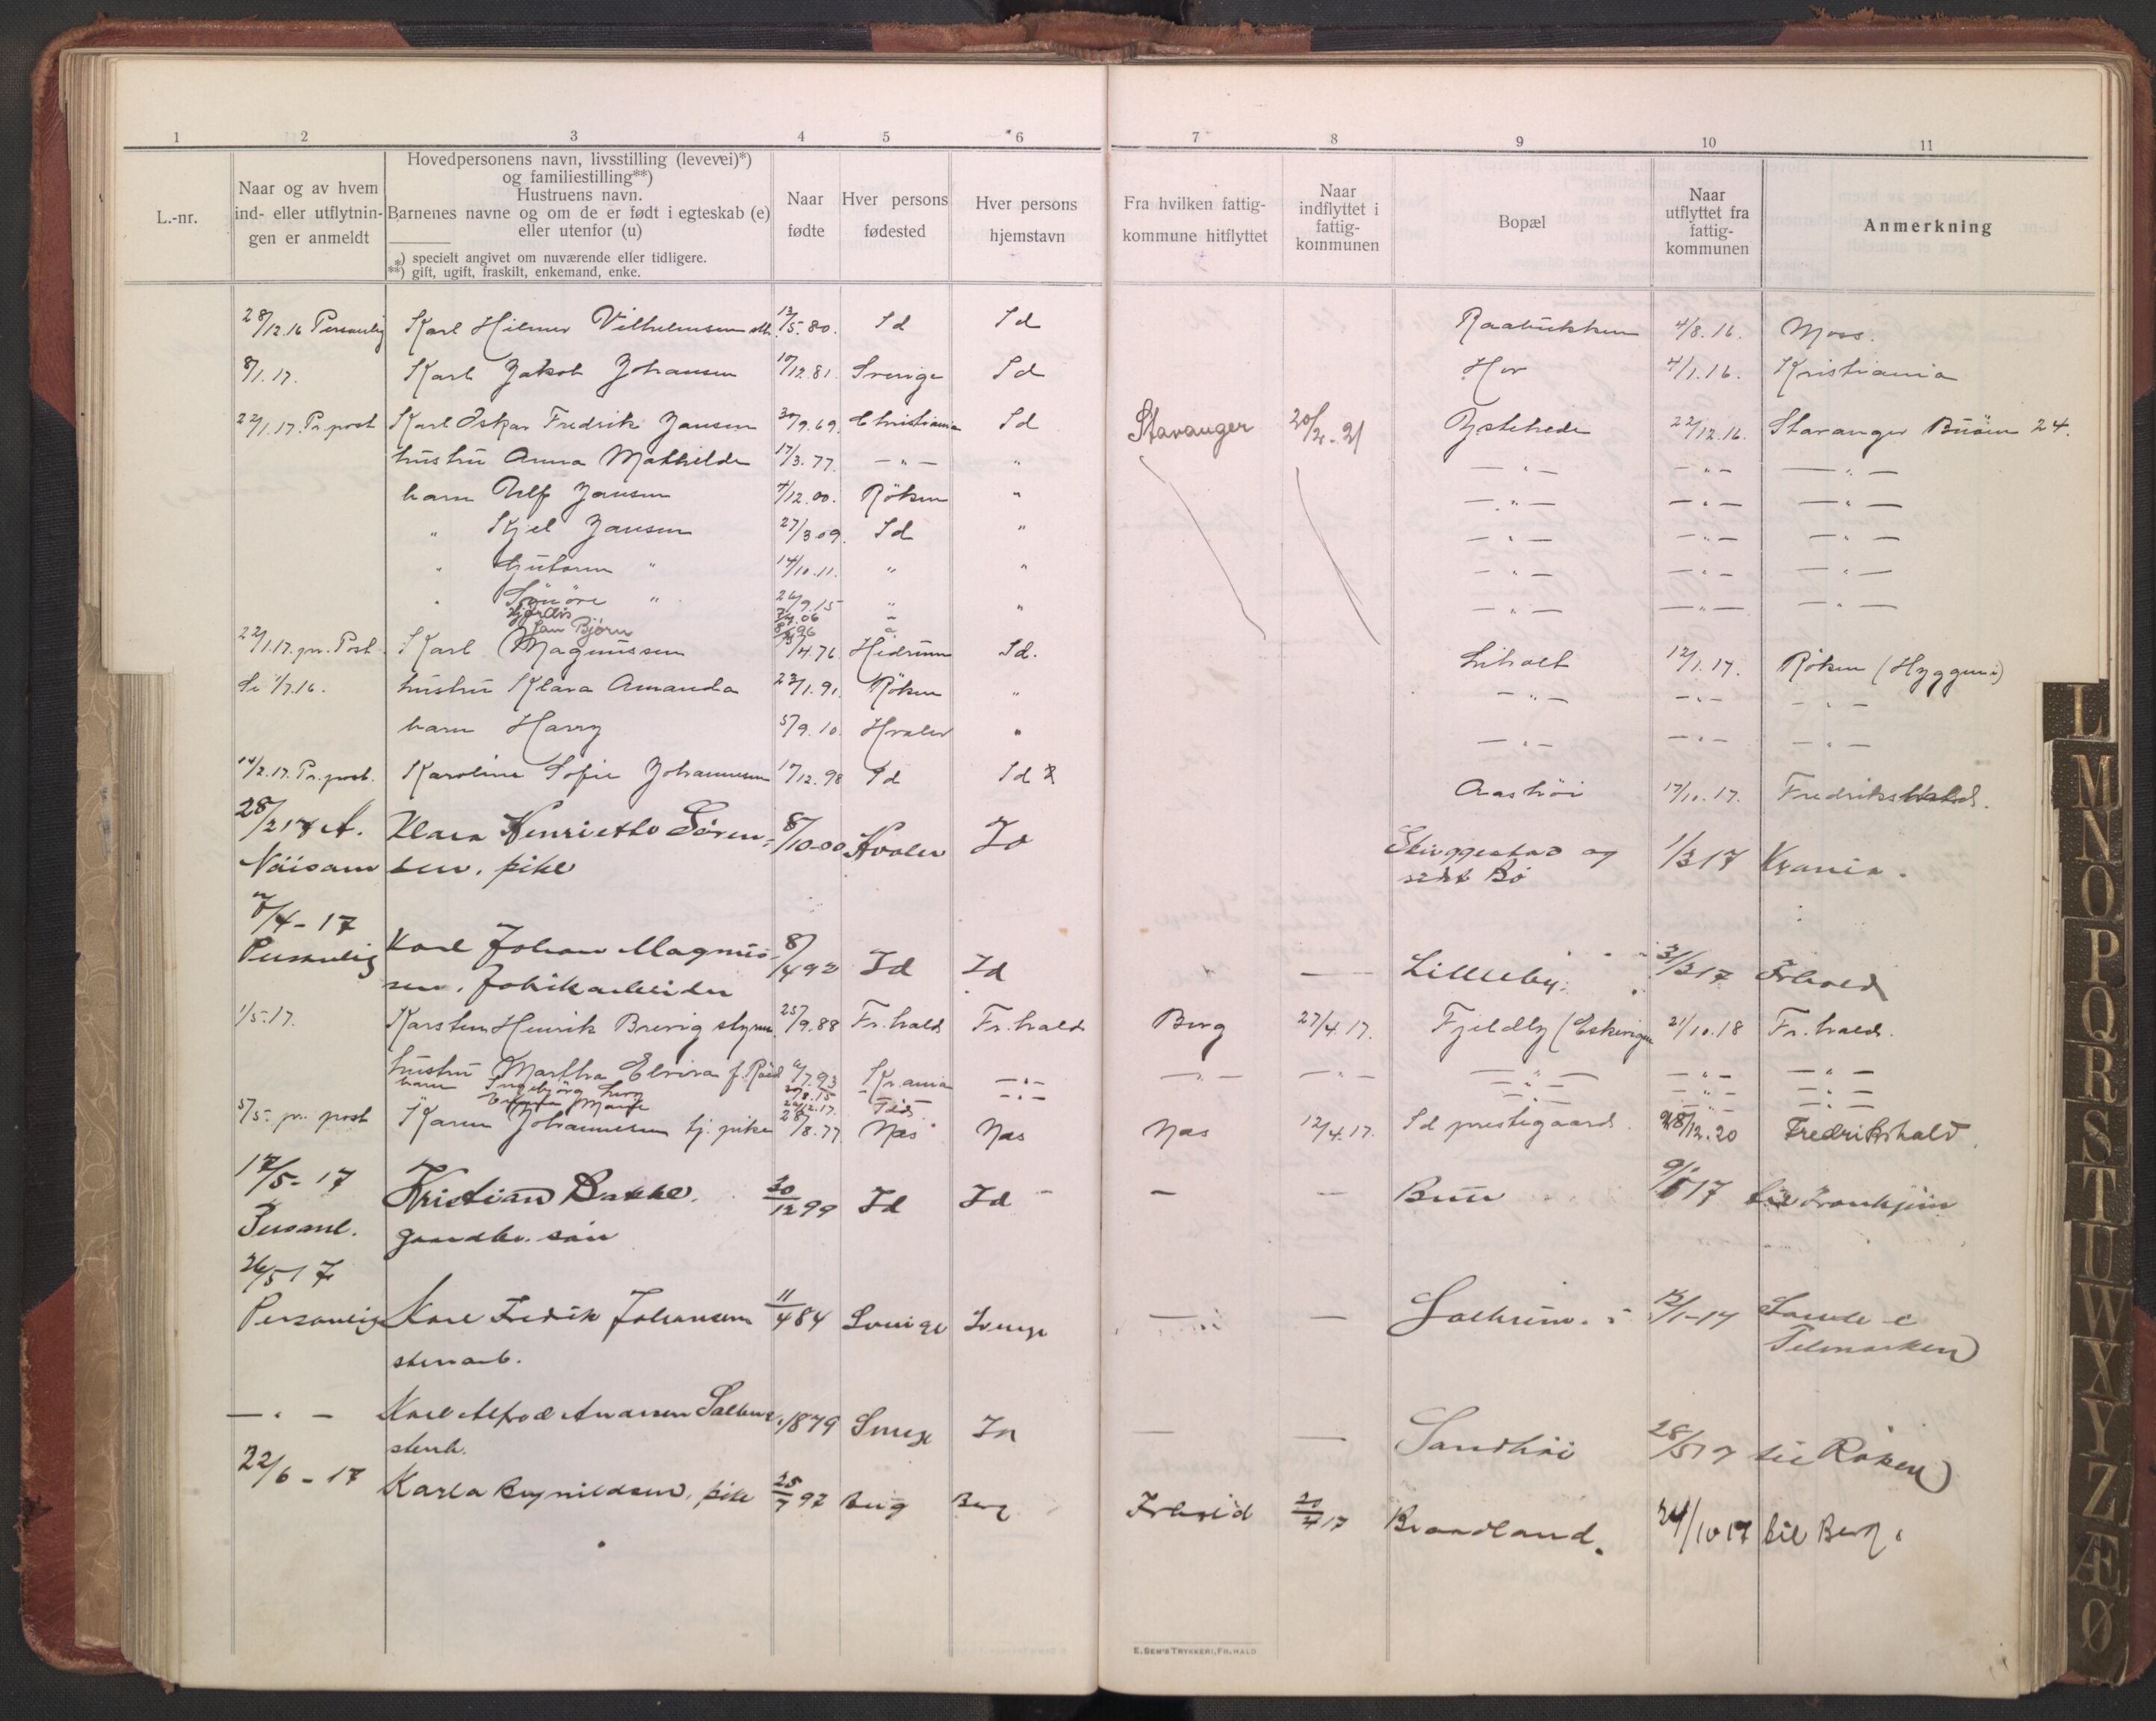 1 2 3 4 5 6 7 8 9 10 11
L.-nr.
Naar og av hvem
ind- eller utflytnin-
gen er anmeldt
Hovedpersonens navn, livsstilling (levevei)*)
og familiestilling**)
Hustruens navn.
Barnenes navne og om de er født i egteskab (e)
eller utenfor (u)
*) specielt angivet om nuværende eller tidligere.
**) gift, ugift, fraskilt, enkemand, enke.
Naar
fødte
Hver persons
fødested
Hver persons
hjemstavn
Fra hvilken fattig-
kommune hitflyttet
Naar
indflyttet i
fattig-
kommunen
Bopæl
Naar
utflyttet fra
fattig-
kommunen
Anmerkning
28/12.16 Personlig Karl Hilmer Vilhelmsen 12/5.80. Id Id Raabukken 4/8.16. Moss.
8/1.17. Karl Jakob Johansen 17/12.81. Sverige Id Hov 4/1.16. Kristiania
22/1.17. Pr. post Karl Oskar Fredrik Jansen 30/9.69. Christiania Id Stavanger 20/2.21 Ystehede 22/12.16. Stavanger Buöen 24.
hustru Anna Mathilde 17/3.77. — " — " — " — — " — — " —
barn Ulf Jansen 4/12.00. Röken " — " — — " — — " —
" Kjel Jansen 27/3.09. Id " — " — — " — — " —
" Guttorm " 14/10.11. " " — " — — " — — " —
" Synöve " 26/9.15 " " — " — — " — — " —
Hjördis 06 "
Jan Björn 96 "
22/1.17. pr. Post Karl Magnussen /4.76 Hedrum Id. Liholt 12/1.17. Röken (Hyggen)
Se 1/7.16. hustru Klara Amanda 23/1.91. Röken " — " — — " — — " —
barn Harry 5/9.10. Hvaler " — " — — " — — " —
14/2.17. Pr. post. Karoline Sofie Johannesen 17/12.98 Id Id Aashöi 17/10.17. Fredrikshald.
28/2 17 A. Klara Henriette Sören- 8/10 00 Hvaler Id Skriggestad og 1/3 17 Krania.
Nöisom sen, pike Bö
7/4-17
Personlig Karl Johan Magnus- 8/4 92 Id Id — Lilleby 31/3 17 Frhald
sen, fabrikarbeider
1/5.17. Karsten Henrik Brevig styrm. 25/9.88 Fr.hald Fr.hald Berg 27/4.17. Fjeldly (Eskevigen 21/10.18 Fr.hald.
hustru Martha Elvira f. Röed 6/7.93 Kr.ania — " — — " — — " — — " — — " — — " —
barn Ingebjörg 20/8.15 — " — — " — — " — — " —
Marie 24/12.17. Idd — " — — " — — " —
5/5- pr. post Karen Johannesen tj. pike 28/8.77. Næs Næs Næs 12/4.17. Id prestegaard. 28/12.20 Fredrikshald.
17/5-17 Kristian Bakke, 30/12 99 Id Id — — Buer 9/5 17 til Tronhjem
Personl. gaardbr. sön
26/5 17
Personlig Karl Fredrik Johansen 11/4 84 Sverige Sverige — — Solheim. 12/1-17 i
stenarb. Telemarken
— " — Karl Alfred Andersen 1879 Sverige Id — — Sandhöi 28/5 17 til Röken
stenh.
22/6-17 Karla Brynildsen, pike 25/7 97 Berg Berg Frhald 20/4 17 Braadland. 24/10 17 til Berg.
E. SEM'S TRYKKERI, FR.HALD
L
M
N
O
P
Q
R
S
T
U
W
X
Y
Z
Æ
Ø